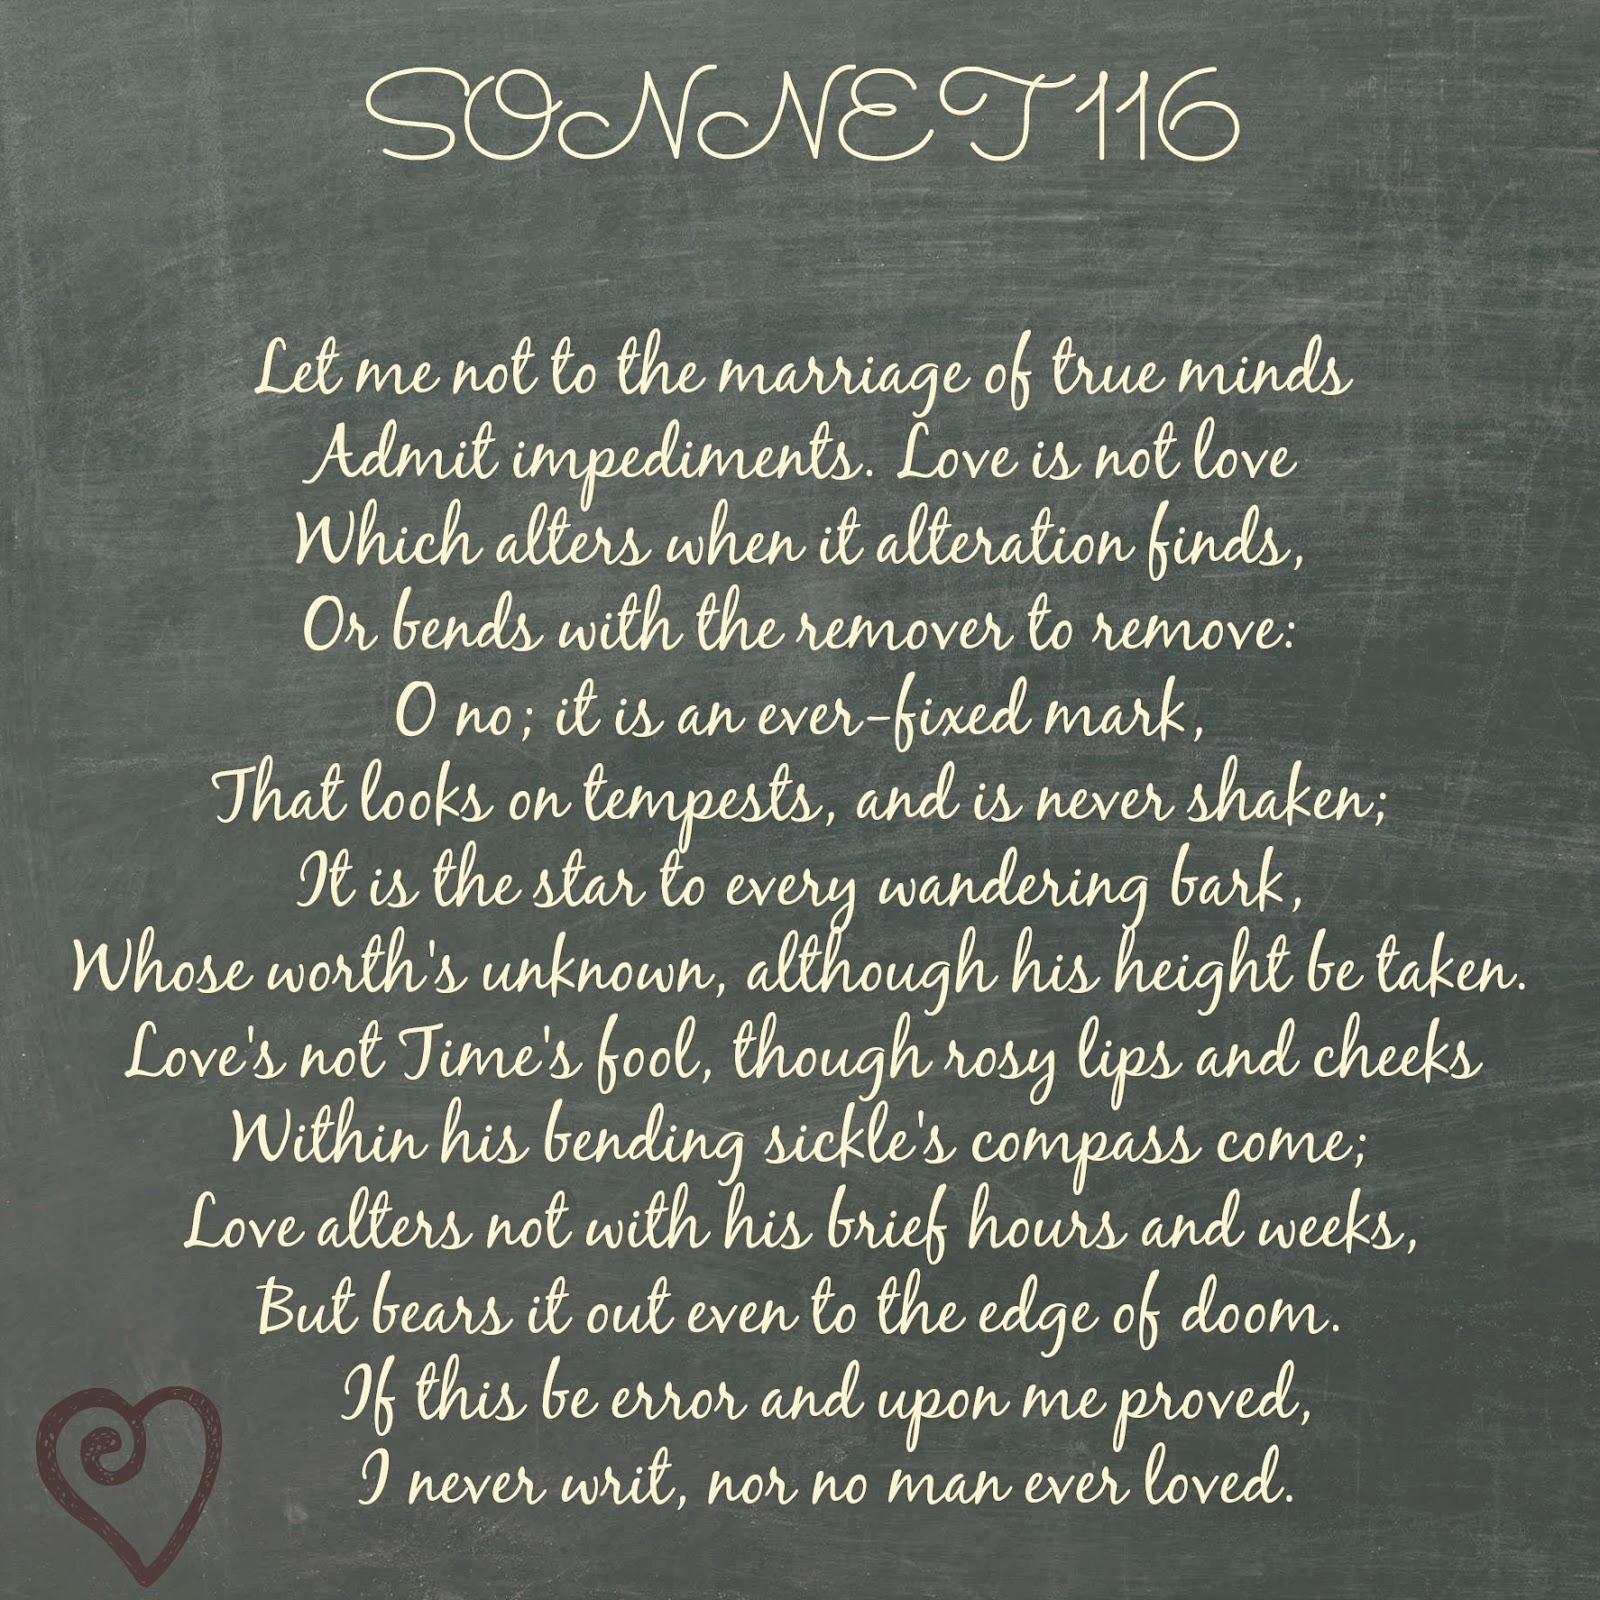 SONNET 116
Let me not to the marriage of true minds
Admit impediments. Love is not love
Which alters when it alteration finds,
Or bends with the remover to remove:
O no; it is an ever-fixed mark,
That looks on tempests, and is never shaken;
It is the star to every wandering bark,
Whose worth's unknown, although his height be taken.
Love's not Time's fool, though rosy lips and cheeks
Within his bending sickle's compass come;
Love alters not with his brief hours and weeks,
But bears it out even to the edge of doom.
If this be error and upon me proved,
I never writ, nor no man ever loved.